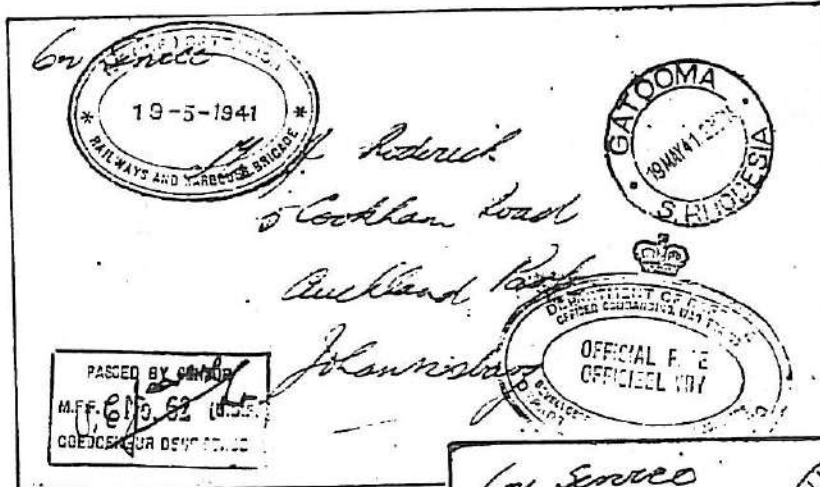 On Service
19-5-1941
RAILWAYS AND HARBOURS BRIGADE
GATOOMA
19 MAY 41
S. RHODESIA
Roderick
5 Cookham Road
Auckland Park
Johannesburg
DEPARTMENT OF
OFFICER COMMANDING
OFFICIAL FREE
OFFICIEEL VRY
PASSED BY CENSOR
M.E.F. No. 62 (U.D.F.)
GOEDGEKEUR DEUR SENSOR
On Service